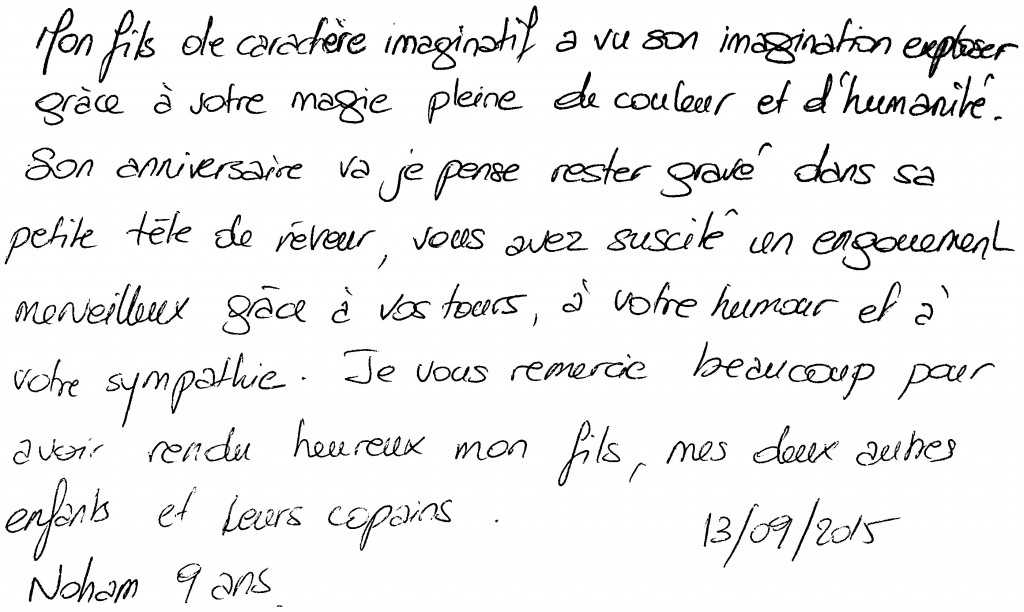 Mon fils de caractère imaginatif a vu son imagination exploser
grâce à votre magie pleine de couleur et d'humanité.
Son anniversaire va je pense rester gravé dans sa
petite tête de rêveur, vous avez suscité un engouement
merveilleux grâce à vos tours, à votre humour et à
votre sympathie. Je vous remercie beaucoup pour
avoir rendu heureux mon fils, mes deux autres
enfants et leurs copains.
13/09/2015
Noham 9 ans.